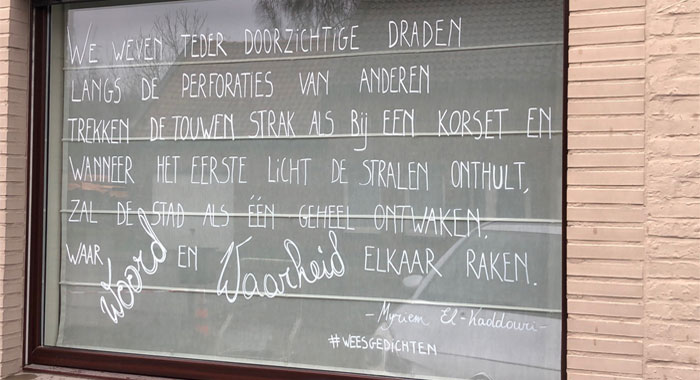 WE WEVEN TEDER DOORZICHTIGE DRADEN
LANGS DE PERFORATIES VAN ANDEREN
TREKKEN DE TOUWEN STRAK ALS Bij EEN KORSET EN
WANNEER HET EERSTE LICHT DE STRALEN ONTHULT,
ZAL DE STAD ALS ÉÉN GEHEEL ONTWAKEN.
WAAR Woord EN Waarheid ELKAAR RAKEN.
- Myriem El-Kaddouri -
#WEESGEDICHTEN